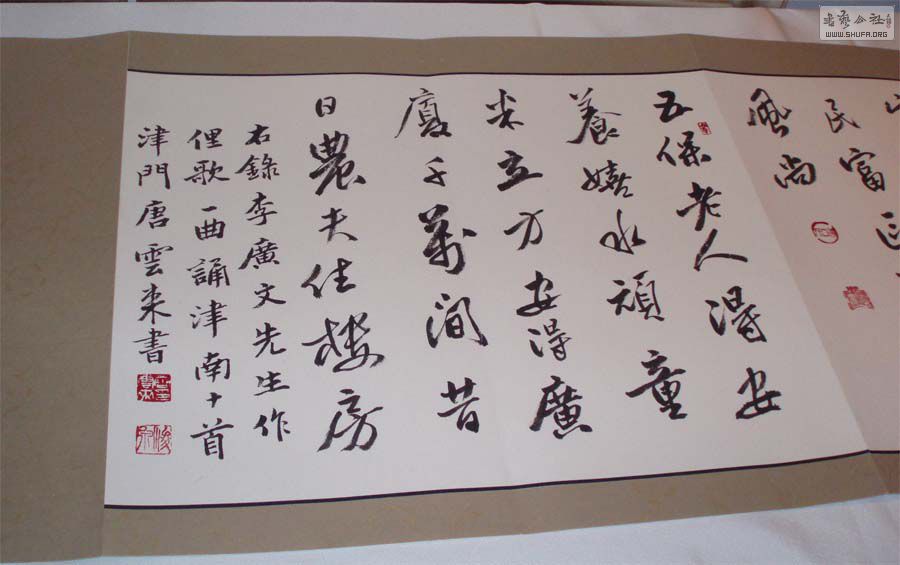 民富
風尚
五保老人得安
養嬉水頑童
米立方安得廣
廈千萬间昔
日農夫住楼房
右錄李廣文先生作
俚歌一曲誦津南十首
津門唐雲来書
書藝公社
WWW.SHUFA.ORG